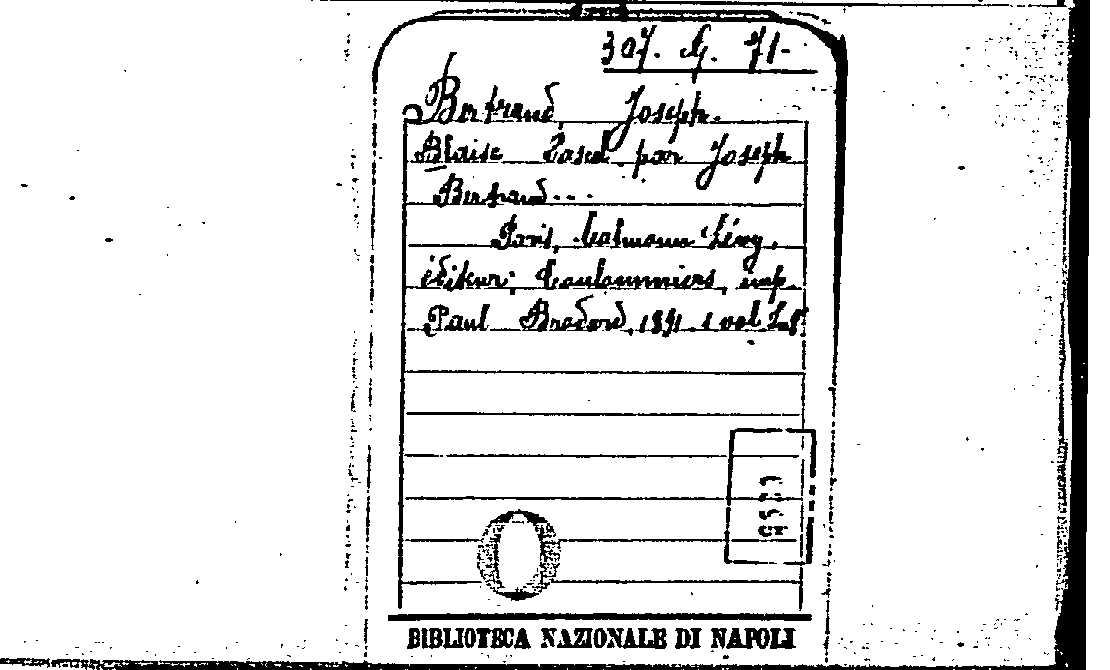 307. G. 71-
Bertrand, Joseph.
Blaise Pascal par Joseph
Bertrand...
Paris, Calmann Lévy,
éditeur; Coulommiers, imp.
Paul Brodard, 1891. 1 vol. In 8°
BIBLIOTECA NAZIONALE DI NAPOLI